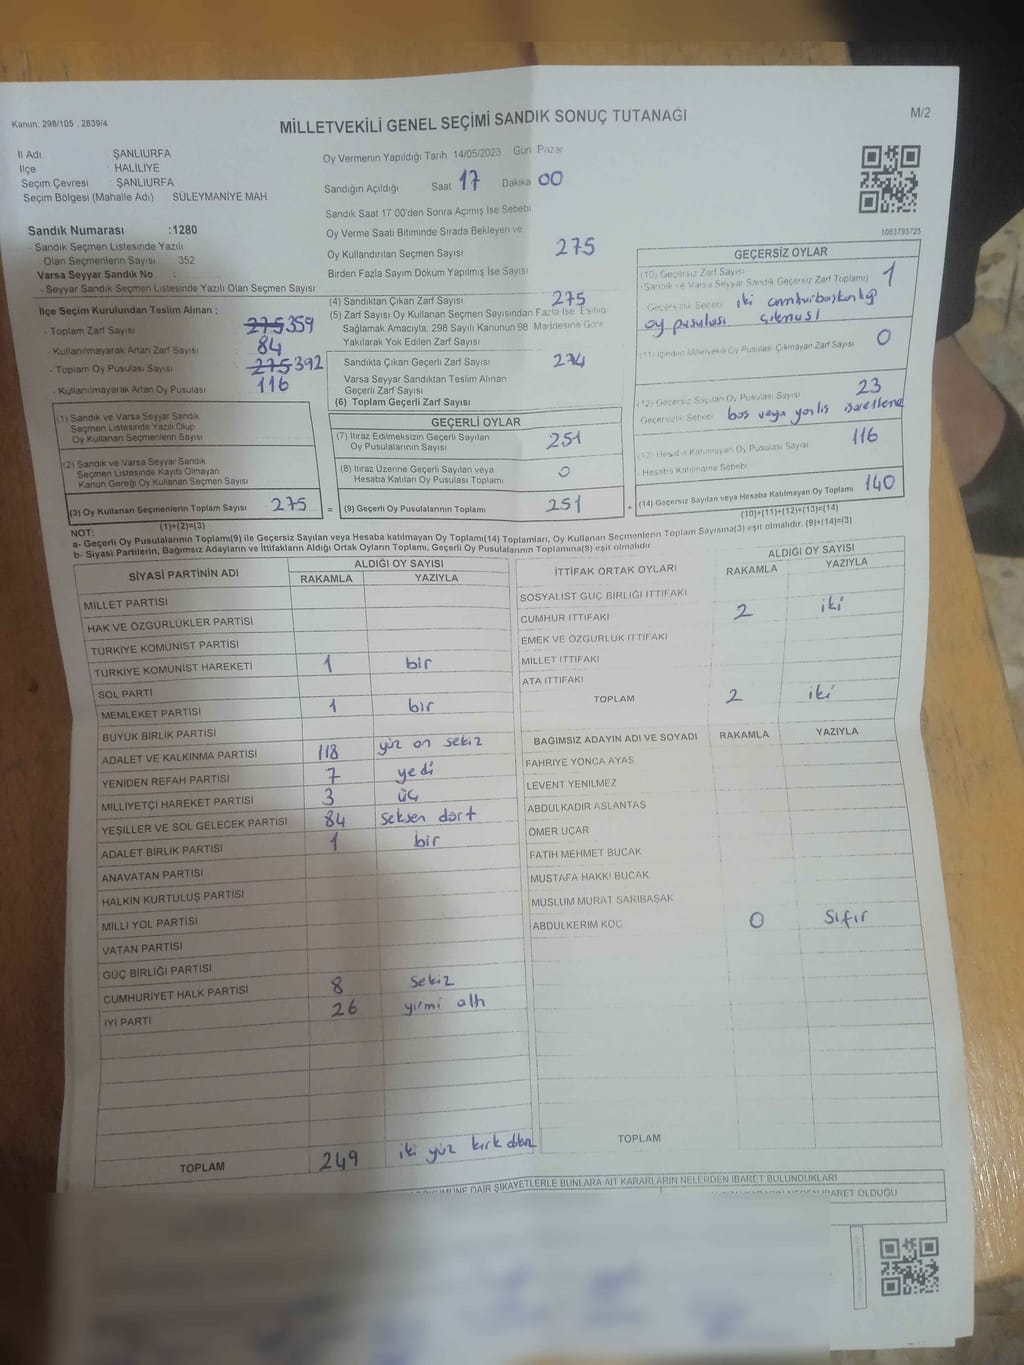 Kanun: 298/105 , 2839/4
MİLLETVEKİLİ GENEL SEÇİMİ SANDIK SONUÇ TUTANAĞI
M/2
İl Adı ŞANLIURFA
İlçe HALİLİYE
Seçim Çevresi ŞANLIURFA
Seçim Bölgesi (Mahalle Adı) SÜLEYMANİYE MAH
Oy Vermenin Yapıldığı Tarih 14/05/2023 Gün Pazar
Sandığın Açıldığı Saat 17 Dakika 00
Sandık Saat 17.00'den Sonra Açımış İse Sebebi
Oy Verme Saati Bitiminde Sırada Bekleyen ve
Oy Kullandırılan Seçmen Sayısı 275
Birden Fazla Sayım Döküm Yapılmış İse Sayısı
1083793725
Sandık Numarası :1280
- Sandık Seçmen Listesinde Yazılı
Olan Seçmenlerin Sayısı 352
Varsa Seyyar Sandık No :
- Seyyar Sandık Seçmen Listesinde Yazılı Olan Seçmen Sayısı
İlçe Seçim Kurulundan Teslim Alınan ;
- Toplam Zarf Sayısı 275 359
- Kullanılmayarak Artan Zarf Sayısı 84
- Toplam Oy Pusulası Sayısı 275 392
- Kullanılmayarak Artan Oy Pusulası 116
(1) Sandık ve Varsa Seyyar Sandık
Seçmen Listesinde Yazılı Olup
Oy Kullanan Seçmenlerin Sayısı
(2) Sandık ve Varsa Seyyar Sandık
Seçmen Listesinde Kayıtlı Olmayan
Kanun Gereği Oy Kullanan Seçmen Sayısı
(3) Oy Kullanan Seçmenlerin Toplam Sayısı 275
(1)+(2)=(3)
(4) Sandıktan Çıkan Zarf Sayısı 275
(5) Zarf Sayısı Oy Kullanan Seçmen Sayısından Fazla İse, Eşitliği
Sağlamak Amacıyla, 298 Sayılı Kanunun 98. Maddesine Göre
Yakılarak Yok Edilen Zarf Sayısı
Sandıkta Çıkan Geçerli Zarf Sayısı 274
Varsa Seyyar Sandıktan Teslim Alınan
Geçerli Zarf Sayısı
(6) Toplam Geçerli Zarf Sayısı
GEÇERLİ OYLAR
(7) İtiraz Edilmeksizin Geçerli Sayılan
Oy Pusulalarının Sayısı 251
(8) İtiraz Üzerine Geçerli Sayılan veya
Hesaba Katılan Oy Pusulası Toplamı 0
= (9) Geçerli Oy Pusulalarının Toplamı 251
GEÇERSİZ OYLAR
(10) Geçersiz Zarf Sayısı 1
(Sandık ve Varsa Seyyar Sandık Geçersiz Zarf Toplamı)
Geçersizlik Sebebi iki cumhurbaşkanlığı
oy pusulası çıkması
(11) İçinden Milletvekili Oy Pusulası Çıkmayan Zarf Sayısı 0
(12) Geçersiz Sayılan Oy Pusulası Sayısı 23
Geçersizlik Sebebi boş veya yanlış işaretleme
(13) Hesaba Katılmayan Oy Pusulası Sayısı 116
Hesaba Katılmama Sebebi
+ (14) Geçersiz Sayılan veya Hesaba Katılmayan Oy Toplamı 140
(10)+(11)+(12)+(13)=(14)
NOT:
a- Geçerli Oy Pusulalarının Toplamı(9) ile Geçersiz Sayılan veya Hesaba katılmayan Oy Toplamı(14) Toplamları, Oy Kullanan Seçmenlerin Toplam Sayısına(3) eşit olmalıdır. (9)+(14)=(3)
b- Siyasi Partilerin, Bağımsız Adayların ve İttifakların Aldığı Ortak Oyların Toplamı, Geçerli Oy Pusulalarının Toplamına(9) eşit olmalıdır
SİYASİ PARTİNİN ADI ALDIĞI OY SAYISI
RAKAMLA YAZIYLA
MİLLET PARTİSİ
HAK VE ÖZGÜRLÜKLER PARTİSİ
TÜRKİYE KOMÜNİST PARTİSİ
TÜRKİYE KOMÜNİST HAREKETİ 1 bir
SOL PARTİ
MEMLEKET PARTİSİ 1 bir
BÜYÜK BİRLİK PARTİSİ
ADALET VE KALKINMA PARTİSİ 118 yüz on sekiz
YENİDEN REFAH PARTİSİ 7 yedi
MİLLİYETÇİ HAREKET PARTİSİ 3 üç
YEŞİLLER VE SOL GELECEK PARTİSİ 84 seksen dört
ADALET BİRLİK PARTİSİ 1 bir
ANAVATAN PARTİSİ
HALKIN KURTULUŞ PARTİSİ
MİLLİ YOL PARTİSİ
VATAN PARTİSİ
GÜÇ BİRLİĞİ PARTİSİ
CUMHURİYET HALK PARTİSİ 8 sekiz
İYİ PARTİ 26 yirmi altı
TOPLAM 249 iki yüz kırk dokuz
İTTİFAK ORTAK OYLARI ALDIĞI OY SAYISI
RAKAMLA YAZIYLA
SOSYALİST GÜÇ BİRLİĞİ İTTİFAKI
CUMHUR İTTİFAKI 2 iki
EMEK VE ÖZGÜRLÜK İTTİFAKI
MİLLET İTTİFAKI
ATA İTTİFAKI
TOPLAM 2 iki
BAĞIMSIZ ADAYIN ADI VE SOYADI RAKAMLA YAZIYLA
FAHRİYE YONCA AYAS
LEVENT YENİLMEZ
ABDULKADİR ASLANTAŞ
ÖMER UÇAR
FATİH MEHMET BUCAK
MUSTAFA HAKKI BUCAK
MÜSLÜM MURAT SARIBAŞAK
ABDULKERİM KOÇ 0 sıfır
TOPLAM
DÖKÜMÜNE DAİR ŞİKAYETLERLE BUNLARA AİT KARARLARIN NELERDEN İBARET BULUNDUKLARI
NEDEN İBARET OLDUĞU